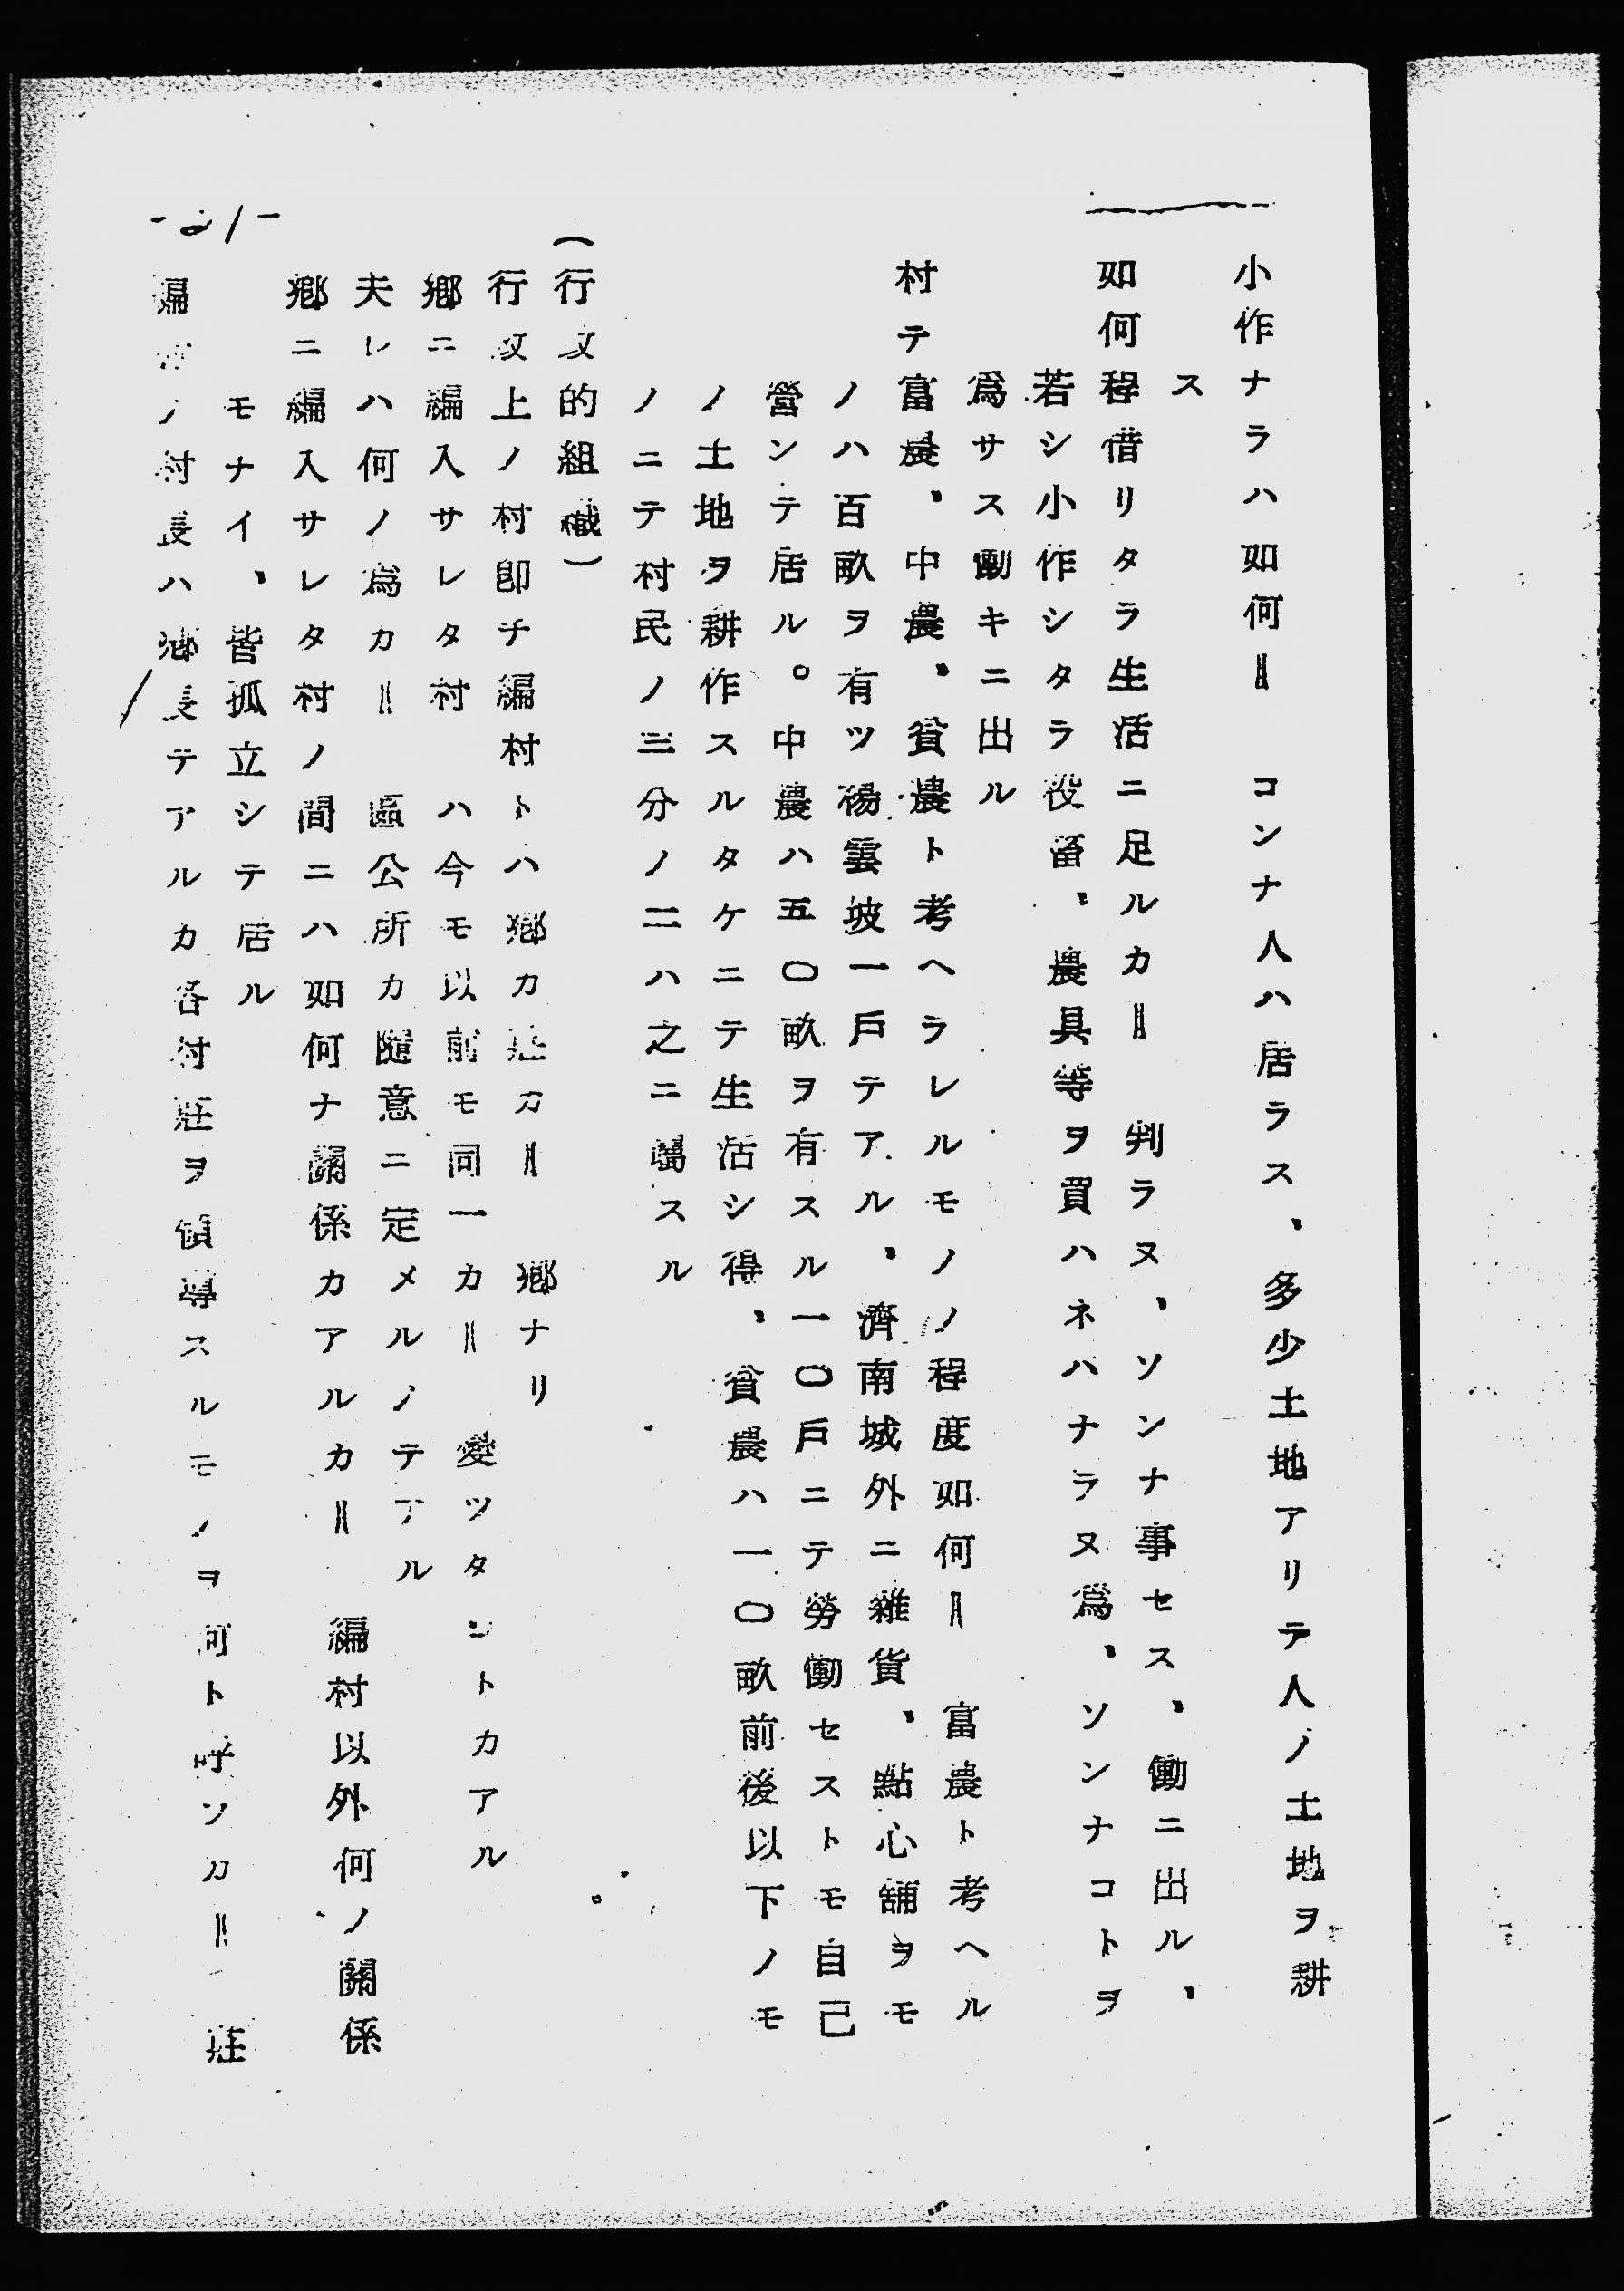 小作ナラハ如何＝　コンナ人ハ居ラス、多少土地アリテ人ノ土地ヲ耕
ス
如何程借リタラ生活ニ足ルカ＝　判ラヌ、ソンナ事セス、働ニ出ル、
若シ小作シタラ役畜、農具等ヲ買ハネハナラヌ爲、ソンナコトヲ
爲サス働キニ出ル
村テ富農、中農、貧農ト考ヘラレルモノノ程度如何＝　富農ト考ヘル
ノハ百畝ヲ有ツ楊雲坡一戸テアル、濟南城外ニ雜貨、點心舖ヲモ
營ンテ居ル。中農ハ五〇畝ヲ有スル一〇戸ニテ勞働セストモ自己
ノ土地ヲ耕作スルタケニテ生活シ得、貧農ハ一〇畝前後以下ノモ
ノニテ村民ノ三分ノ二ハ之ニ屬スル
（行政的組織）
行政上ノ村卽チ編村トハ鄕カ莊カ＝　鄕ナリ
鄕ニ編入サレタ村　ハ今モ以前モ同一カ＝　變ツタコトカアル
夫レハ何ノ爲カ＝　區公所カ隨意ニ定メルノテアル
鄕ニ編入サレタ村ノ間ニハ如何ナ關係カアルカ＝　編村以外何ノ關係
モナイ、皆孤立シテ居ル
編村ノ村長ハ鄕長テアルカ各村莊ヲ領導スルモノヲ何ト呼ソカ＝　莊
-21-